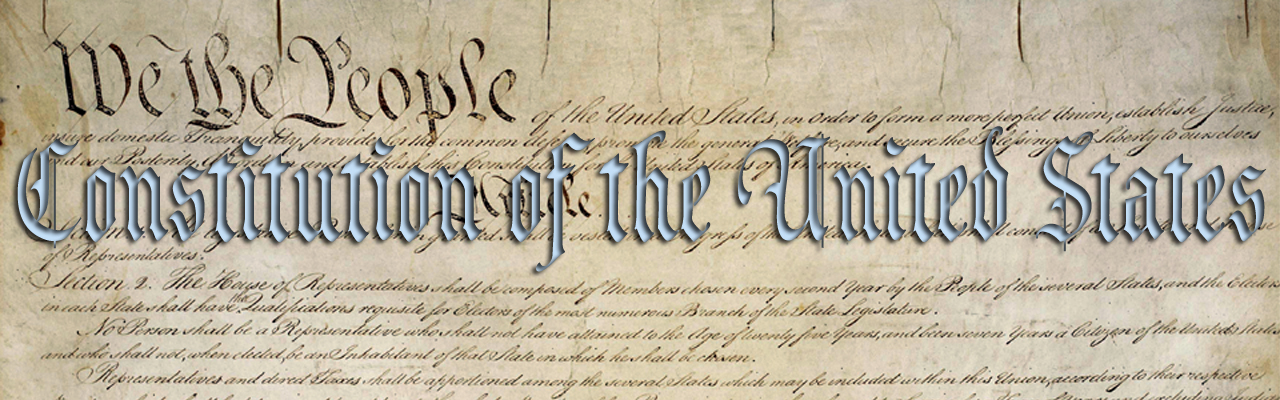 We the People of the United States, in Order to form a more perfect Union, establish Justice,
insure domestic Tranquility, provide for the common defence, promote the general Welfare, and secure the Blessings of Liberty to ourselves
and our Posterity, do ordain and establish this Constitution for the United States of America.
Constitution of the United States
Article.
of Representatives.
Section. 2. The House of Representatives shall be composed of Members chosen every second Year by the People of the several States, and the Electors
in each State shall have the Qualifications requisite for Electors of the most numerous Branch of the State Legislature.
No Person shall be a Representative who shall not have attained to the Age of twenty five Years, and been seven Years a Citizen of the United States,
and who shall not, when elected, be an Inhabitant of that State in which he shall be chosen.
Representatives and direct Taxes shall be apportioned among the several States which may be included within this Union, according to their respective